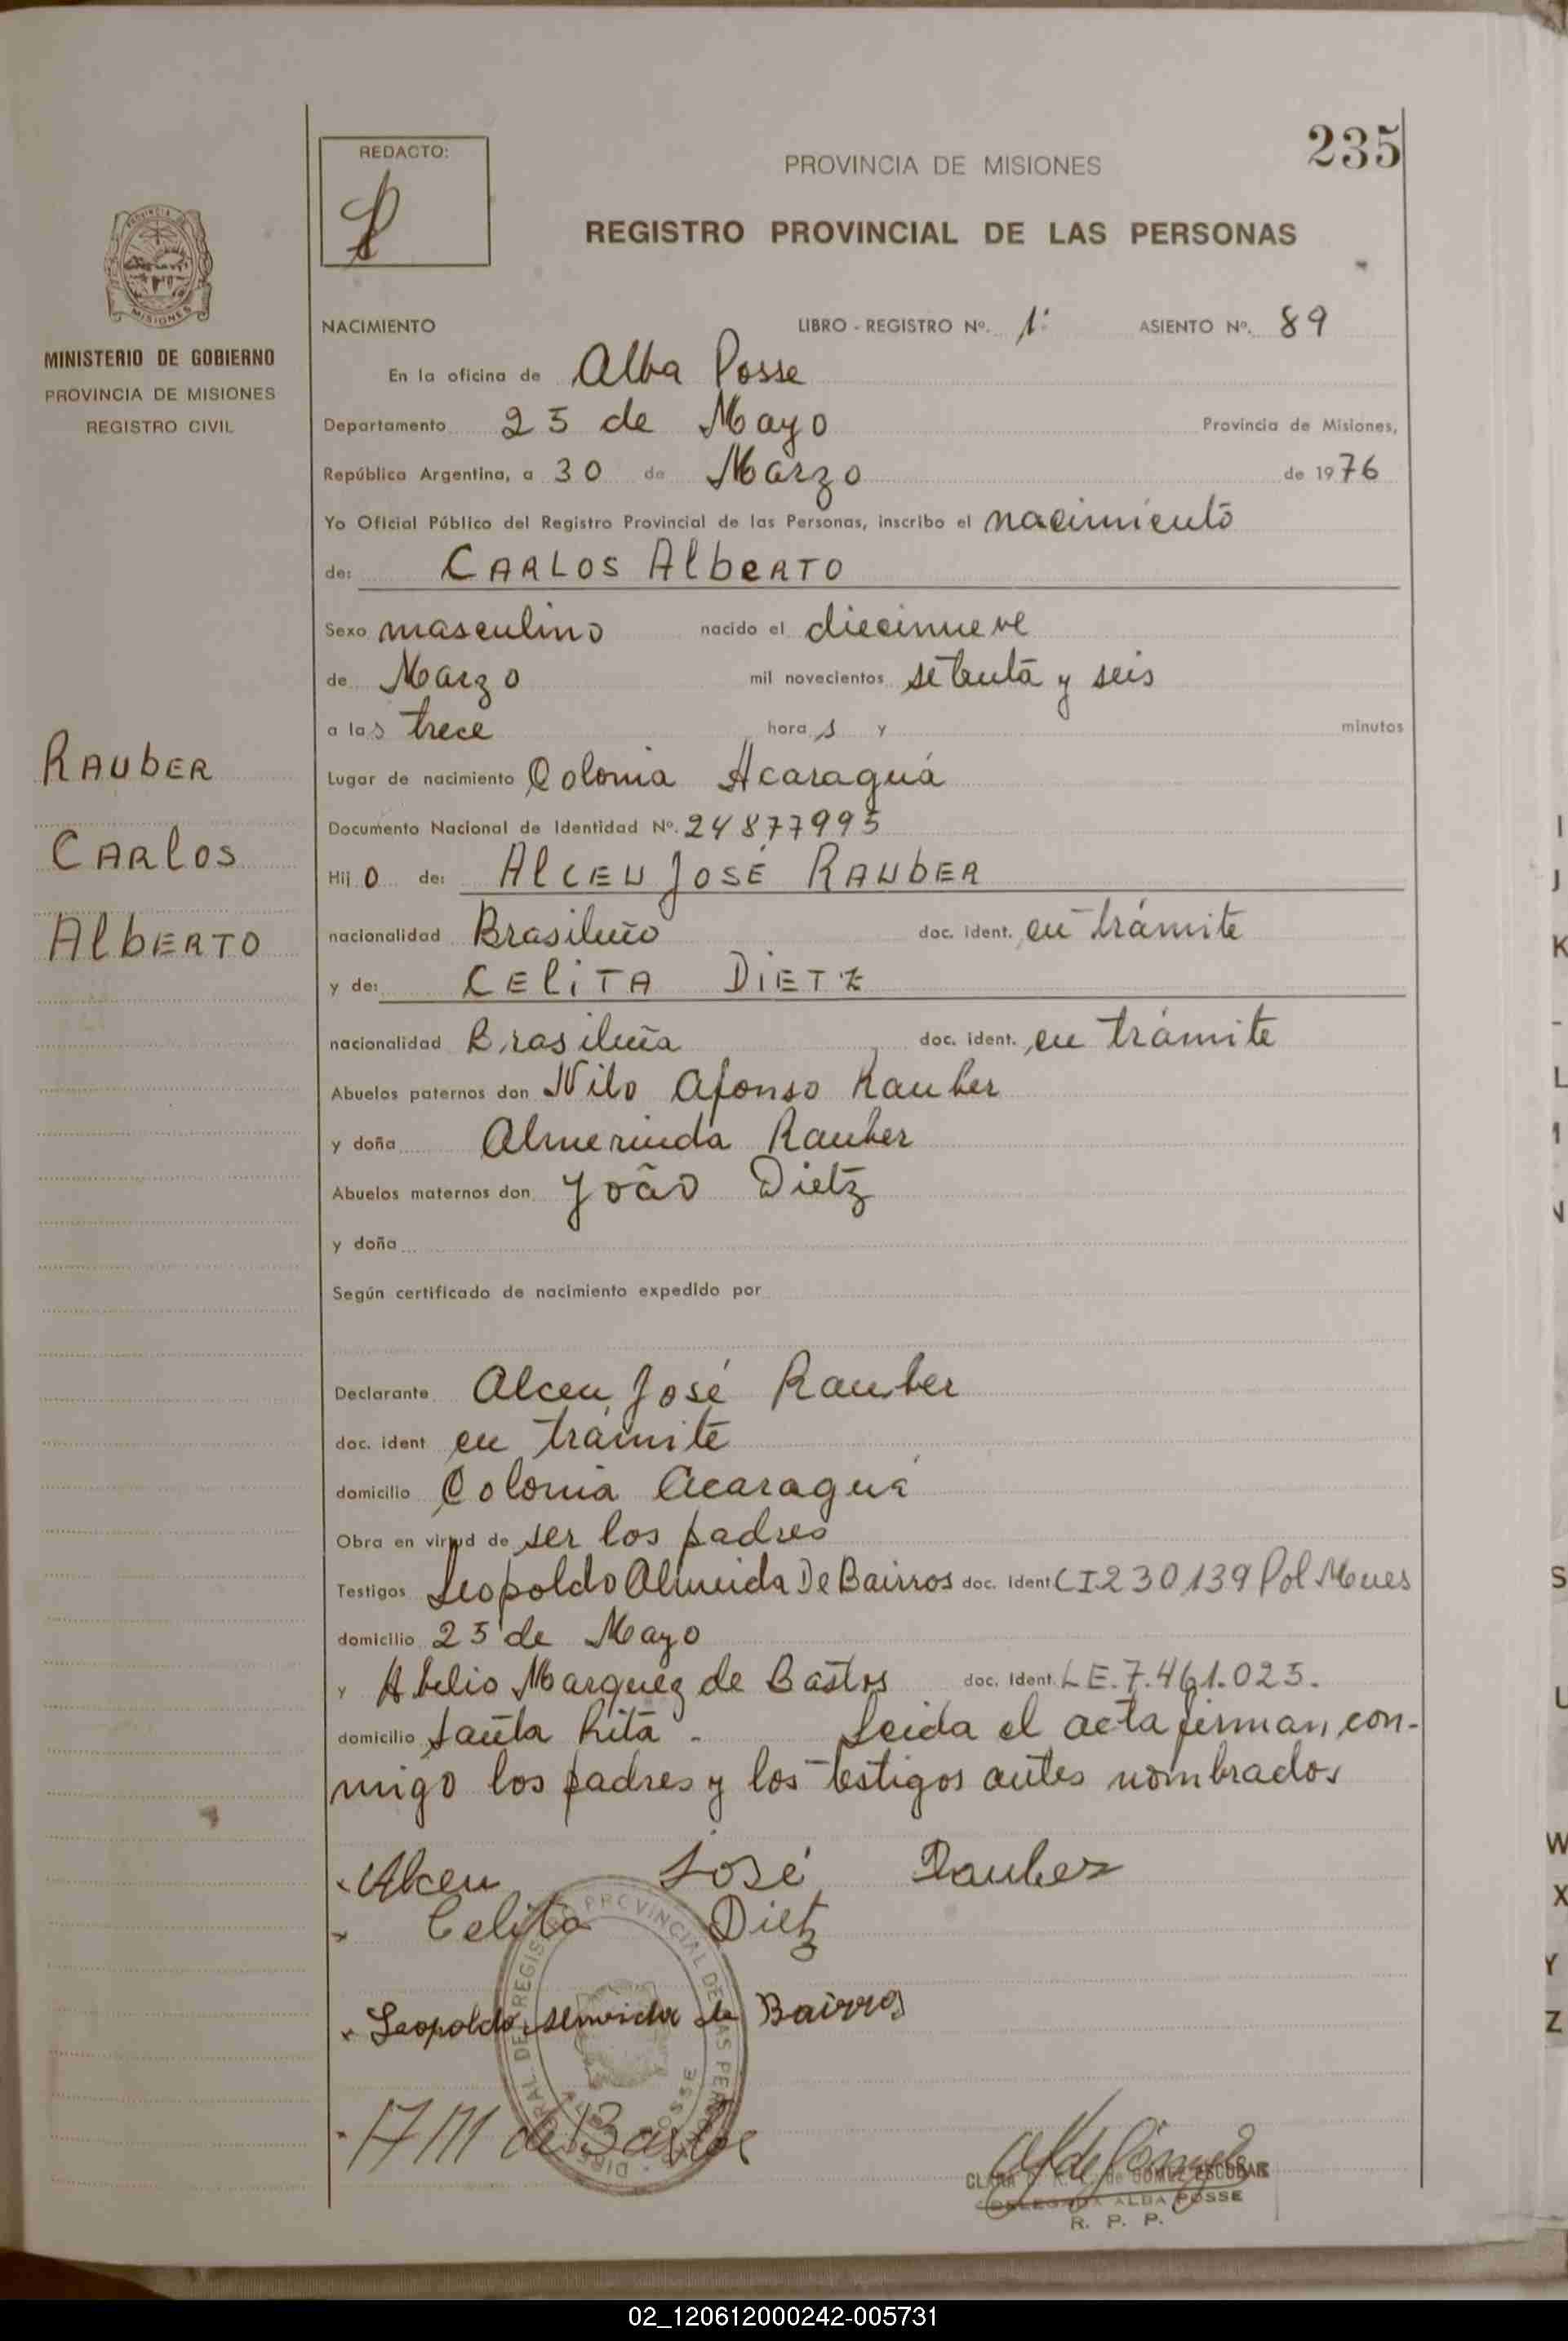 235
REDACTO:
PROVINCIA DE MISIONES
REGISTRO PROVINCIAL DE LAS PERSONAS
MISIONES
MINISTERIO DE GOBIERNO
PROVINCIA DE MISIONES
REGISTRO CIVIL
RAUBER
CARLOS
ALBERTO
NACIMIENTO LIBRO - REGISTRO Nº. 1º ASIENTO Nº. 89
En la oficina de Alba Posse
Departamento 25 de Mayo Provincia de Misiones,
República Argentina, a 30 de Marzo de 1976
Yo Oficial Público del Registro Provincial de las Personas, inscribo el nacimiento
de: CARLOS AlbeRTO
Sexo masculino nacido el diecinueve
de Marzo mil novecientos setenta y seis
a las trece horas y minutos
Lugar de nacimiento Colonia Acaraguá
Documento Nacional de Identidad Nº. 24877995
Hijo de: AlCEU JOSÉ RAUbER
nacionalidad Brasileño doc. ident. en trámite
y de: CEliTA DiETZ
nacionalidad Brasileña doc. ident. en trámite
Abuelos paternos don Nilo Afonso Rauber
y doña Almerinda Rauber
Abuelos maternos don João Dietz
y doña
Según certificado de nacimiento expedido por
Declarante Alceu José Rauber
doc. ident en trámite
domicilio Colonia Acaraguá
Obra en virtud de ser los padres
Testigos Leopoldo Almeida De Bairros doc. ident CI 230139 Pol Mnes
domicilio 25 de Mayo
y Abelio Marquez de Bastos doc. ident. LE. 7.461.025.
domicilio Santa Rita - Leida el acta firman, con-
migo los padres y los testigos antes nombrados
Alceu José Rauber
Celita Dietz
Leopoldo Almeida de Bairros
de Bastos
CLARA de GOMEZ ESCOBAR
DELEGADA ALBA POSSE
R. P. P.
I
J
K
L
N
S
U
W
X
Y
Z
02_120612000242-005731